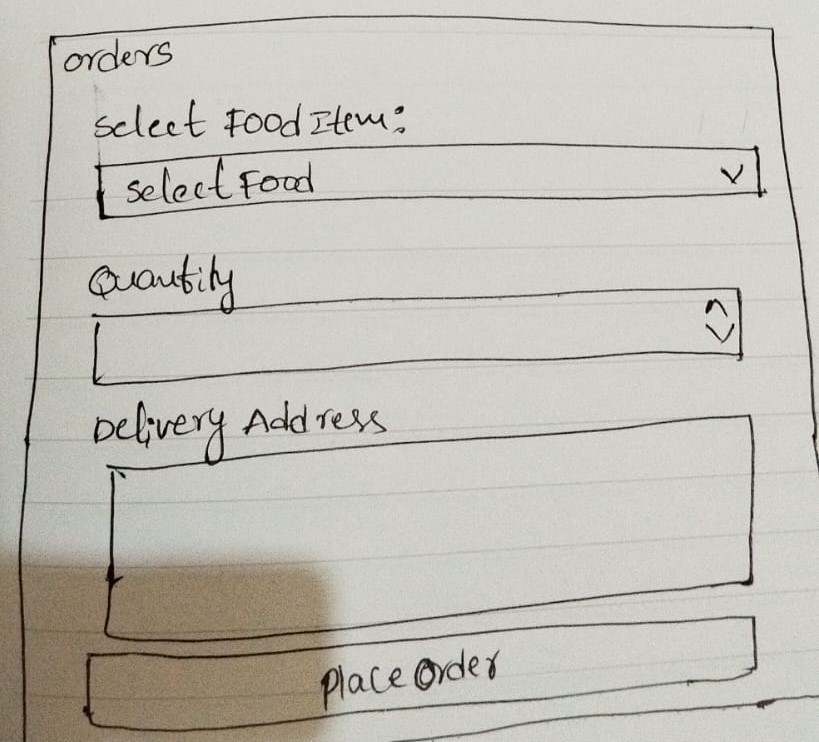 orders
Select Food Item:
Select Food
Quantity
Delivery Address
Place Order